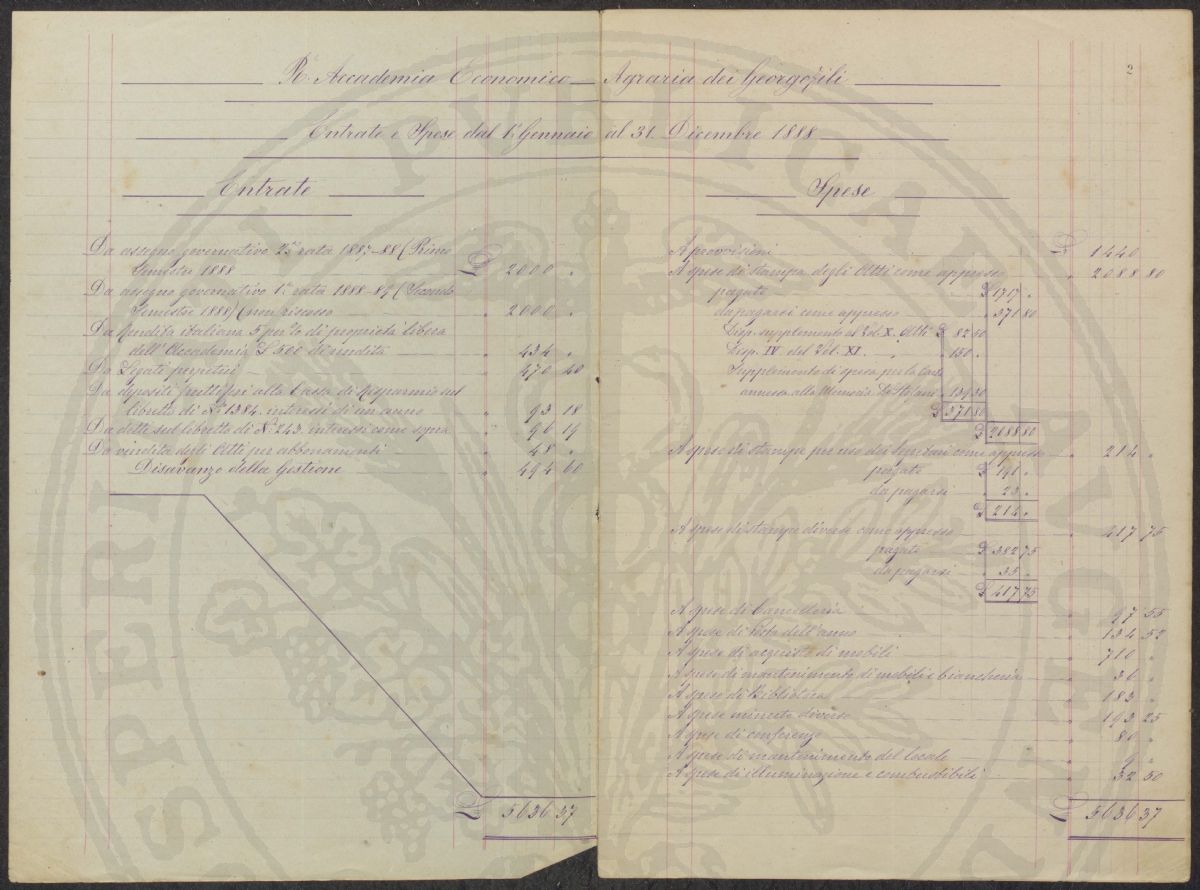 2
R. Accademia Economico Agraria dei Georgofili
Entrate e Spese dal 1° Gennaio al 31 Dicembre 1888
Entrate
Da assegno governativo 2ª rata 1887-88 (Primo
Semestre 1888 £ 2000 "
Da assegno governativo 1ª rata 1888-89 (Secondo
Semestre 1888) (non riscosso " 2000 "
Da Rendita italiana 5 per % di proprietà libera
dell'Accademia £ 500 di rendita " 434 "
Da Legati perpetui " 470 40
Da depositi fruttiferi alla Cassa di Risparmio sul
libretto di Nº 1384. interessi di un anno " 93 18
Da detto sul libretto di Nº 243. interessi come sopra " 96 19
Da vendita degli Atti per abbonamenti " 48 "
Disavanzo della Gestione " 494 60
£ 5636 37
Spese
A provvisioni £ 1440 "
A spese di stampa degli Atti come appresso " 2088 80
pagate £ 1717 "
da pagarsi come appresso " 371 80
Disp. supplemento al Vol. X. Atti £ 82 50
Disp. IV del Vol. XI. " 150 "
Supplemento di spesa per la
annessa alla Memoria De Stefani " 139 30
£ 371 80
£ 2088 80
A spese di stampa per uso dei come appresso " 214 "
pagate £ 191 "
da pagarsi " 23 "
£ 214 "
A spese di stampe diverse come appresso " 417 75
pagate £ 382 75
da pagarsi " 35 "
£ 417 75
A spese di Cancelleria " 97 55
A spese di Posta dell'anno " 134 52
A spese di acquisto di mobili " 710 "
A spese di mantenimento di mobili e biancheria " 36 "
A spese di Biblioteca " 183 "
A spese minute diverse " 193 25
A spese di conferenze " 80 "
A spese di mantenimento del locale " 9 "
A spese di illuminazione e combustibili " 32 50
£ 5636 37
SPERI PVBLICAE AVGEN